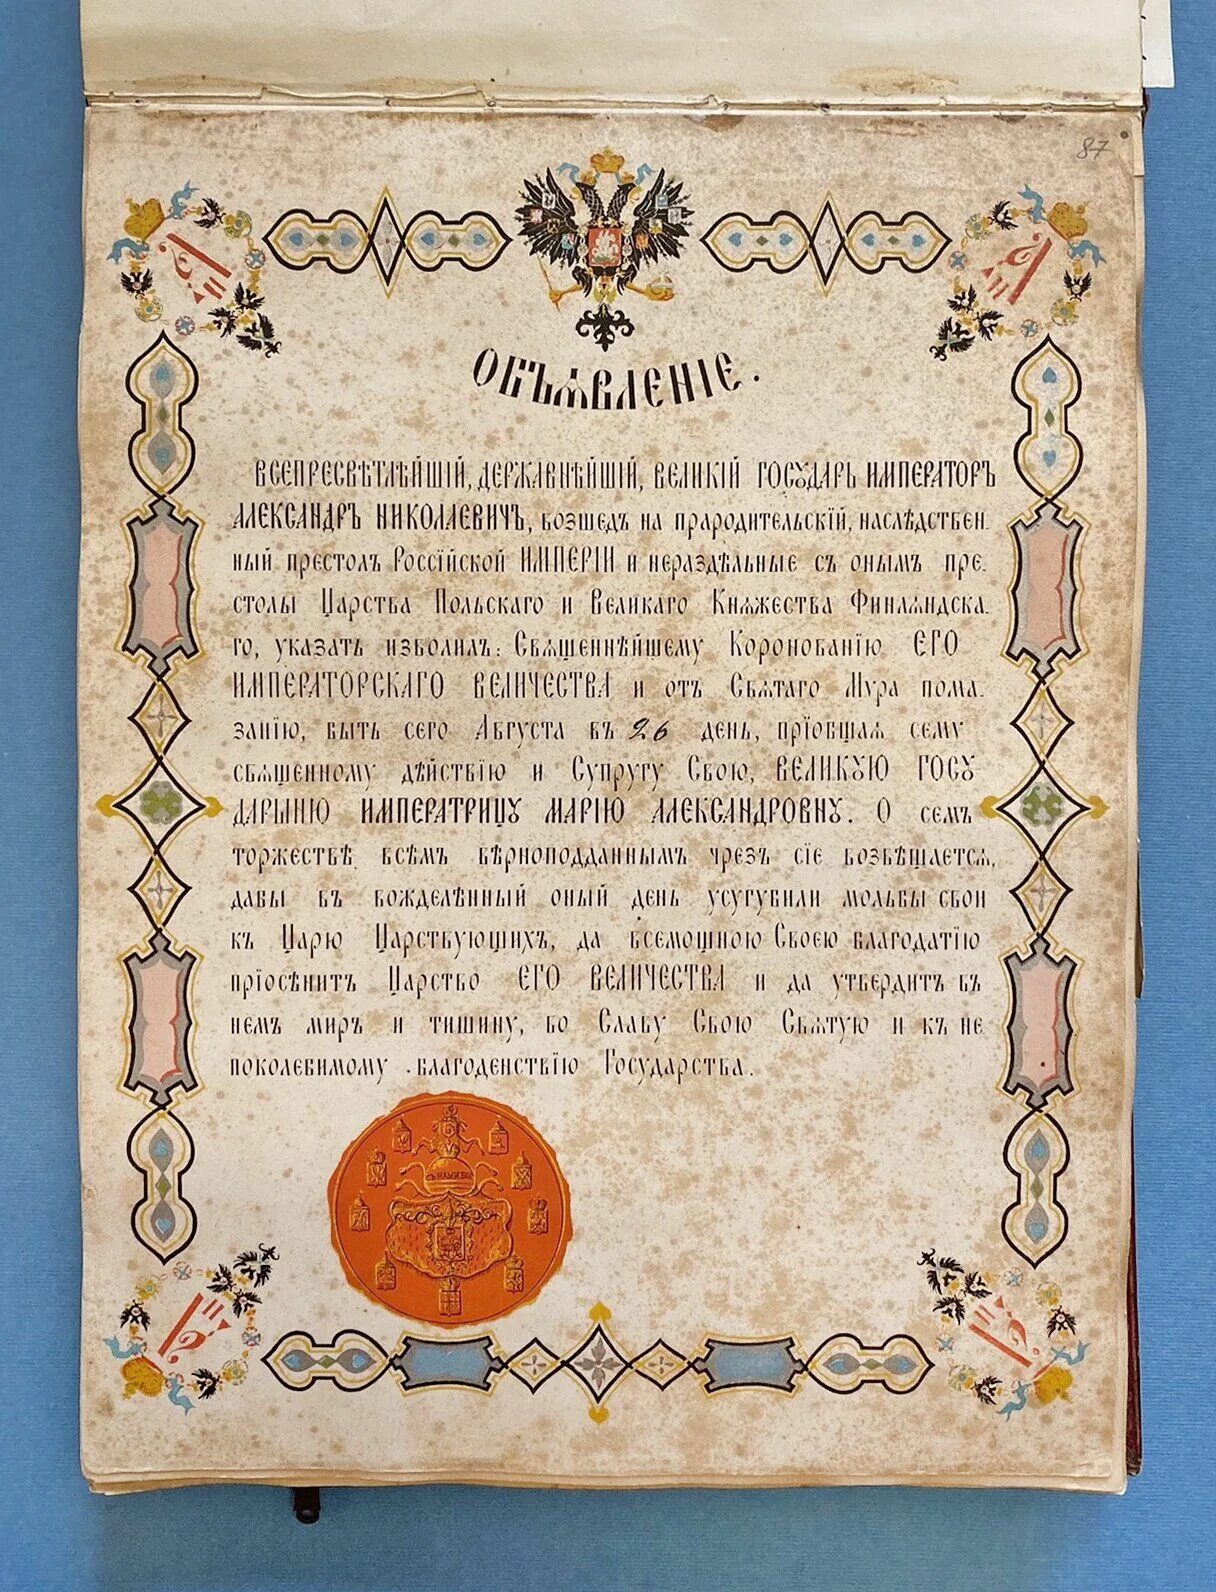 87
ОБЪѦВЛЕНІЕ.
ВСЕПРЕСВѢТЛѢЙШІЙ, ДЕРЖАВНѢЙШІЙ, ВЕЛИКІЙ ГОСУДАРЬ ИМПЕРАТОРЪ
АЛЕКСАНДРЪ НИКОЛАЕВИЧЪ, возшедъ на прародительскій, наслѣдствен-
ный престолъ Россійской ИМПЕРІИ и нераздѣльные съ онымъ пре-
столы Царства Польскаго и Великаго Кнѧжества Финлѧндска-
го, указать изволилъ: Свѧщеннѣйшему Коронованію ЕГО
ИМПЕРАТОРСКАГО ВЕЛИЧЕСТВА и отъ Свѧтаго Мура пома-
занію, быть сего Августа въ 26 день, пріобщаѧ сему
свѧщенному дѣйствію и Супругу Свою, ВЕЛИКУЮ ГОСУ
ДАРЫНЮ ИМПЕРАТРИЦУ МАРІЮ АЛЕКСАНДРОВНУ. О семъ
торжествѣ всѣмъ вѣрноподданнымъ чрезъ сіе возвѣщаетсѧ,
дабы въ вожделѣнный оный день усугубили мольбы свои
къ Царю Царствующихъ, да всемощною Своею благодатію
пріосѣнитъ Царство ЕГО ВЕЛИЧЕСТВА и да утвердитъ въ
немъ миръ и тишину, во Славу Свою Свѧтую и къ не
поколебимому благоденствію Государства.
СЪ НАМИ БОГ